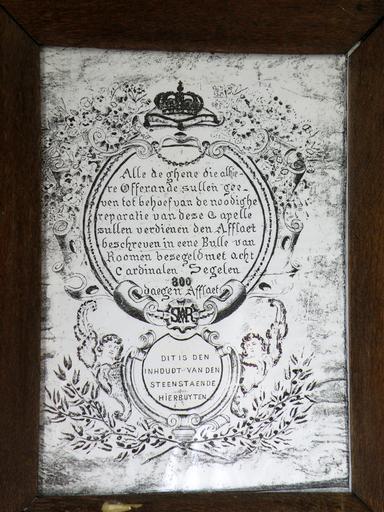 Alle de ghene die alhie-
re Offerande sullen gee-
ven tot behoef van de noodighe
reparatie van dese Capelle
sullen verdienen den Afflaet
beschreven in eene Bulle van
Roomen besegeld met acht
Cardinalen Segelen
800
daegen Afflaet
DIT IS DEN
INHOUDT VAN DEN
STEENSTAENDE
HIERBUYTEN